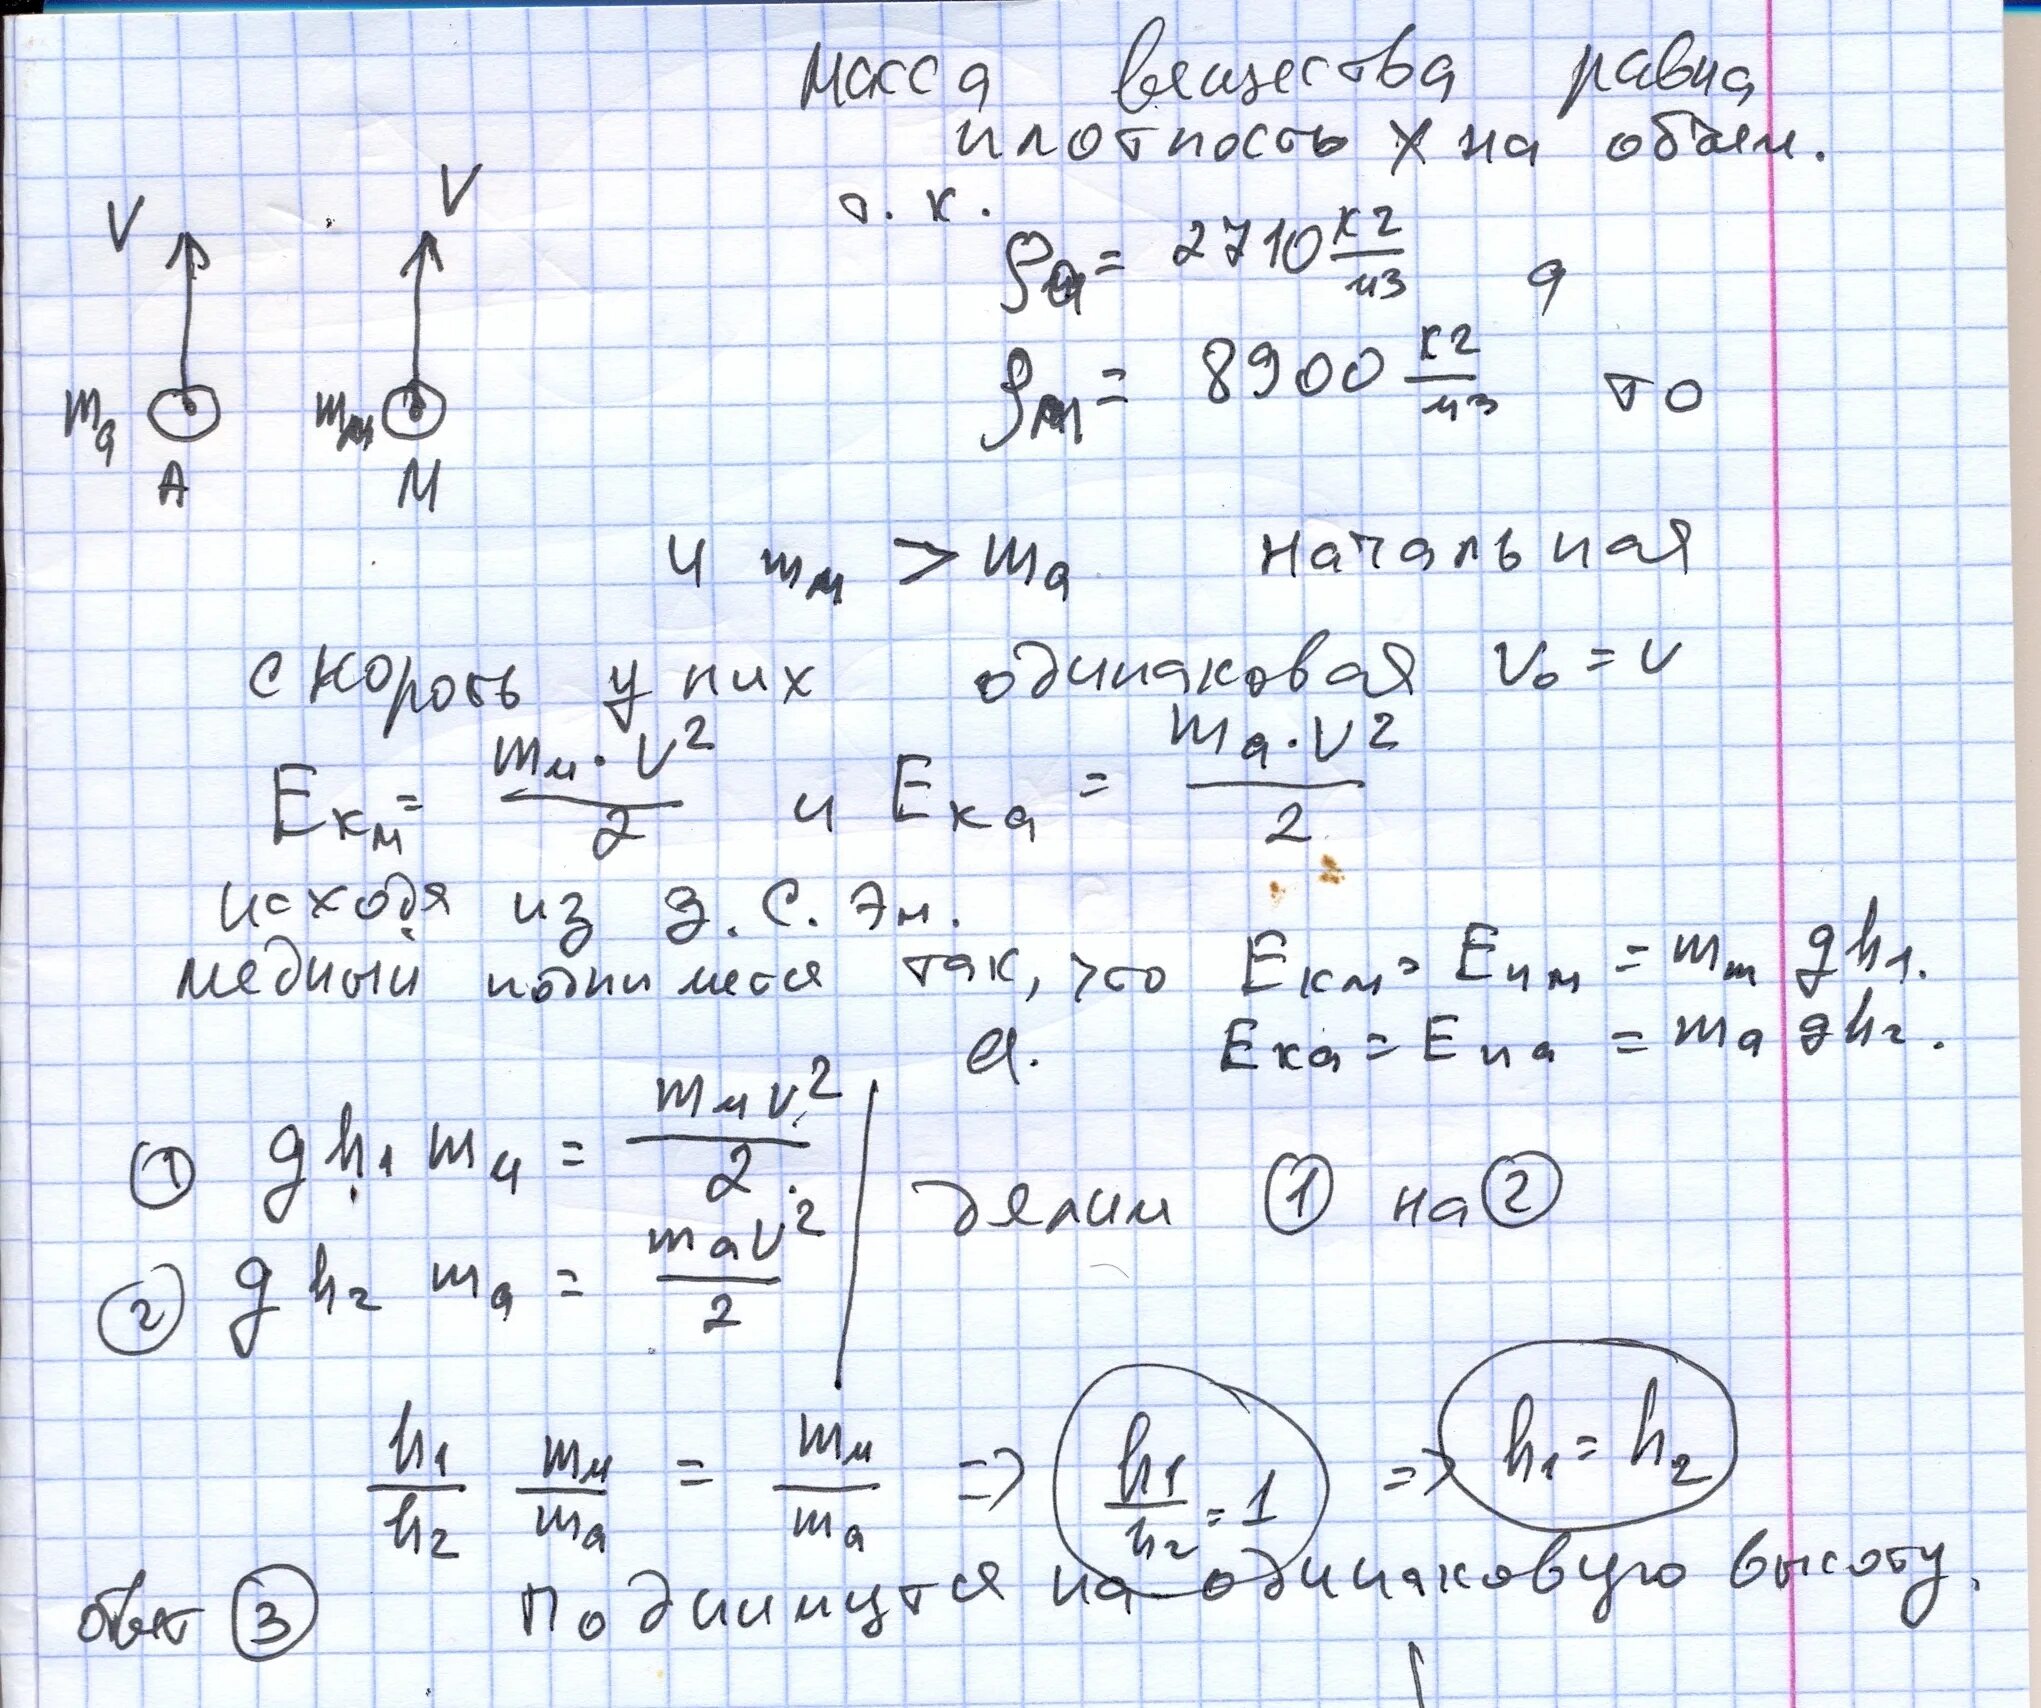 масса вещества равна
плотность х на объем.
т. к.
ρа = 2710 кг/м3 а
ρм = 8900 кг/м3 то
V V
mа mм
А М
и mм > mа начальная
скорость у них одинаковая V₀ = V
Eкм = mм · V²/2 и Eка = mа · V²/2
исходя из З. С. Эн.
медный поднимется так, что Eкм = Eпм = mм gh₁.
а. Eка = Eпа = mа gh₂.
① gh₁ mм = mмV²/2
делим ① на ②
② gh₂ mа = mаV²/2
h₁/h₂ mм/mа = mм/mа => h₁/h₂ = 1 => h₁ = h₂
ответ ③ Поднимутся на одинаковую высоту.